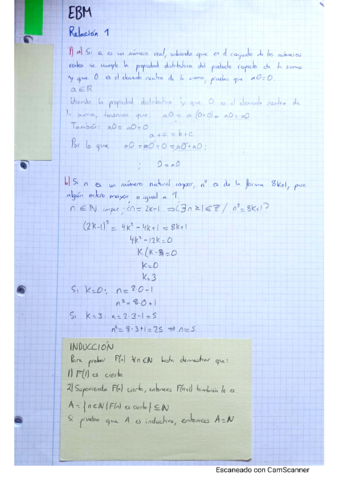 EBM
Relación 1
1) a) Si a es un número real, sabiendo que en el conjunto de los números
reales se cumple la propiedad distributiva del producto respecto de la suma
y que 0 es el elemento neutro de la suma, prueba que a·0=0.
a∈R
Usando la propiedad distributiva y que 0 es el elemento neutro de
la suma, tenemos que: a0 = a(0+0) = a0 + a0
También: a0 = a0+0
a+c = b+c
Por lo que a0+a0 = a0+0
0 = a0
b) Si n es un número natural impar, n² es de la forma 8k+1, para
algún entero mayor o igual a 1
n∈N impar n=2k-1 ⇒ (∃ ≥1∈Z / n²=8k+1)
(2k-1)² = 4k²-4k+1 = 8k+1
4k²-12k=0
k=0
k=3
Si k=0; n=2·0-1
n²=8·0+1
Si k=3: n=2·3-1=5
n²=8·3+1=25 ⇒ n=5
INDUCCIÓN
Para probar P(n) ∀n∈N basta demostrar que:
1) P(1) es cierto
2) Suponiendo P(n) cierto, entonces P(n+1) también lo es
A={n∈N/P(n) es cierto}⊆N
Si pruebas que A es inductivo, entonces A=N
Escaneado con CamScanner